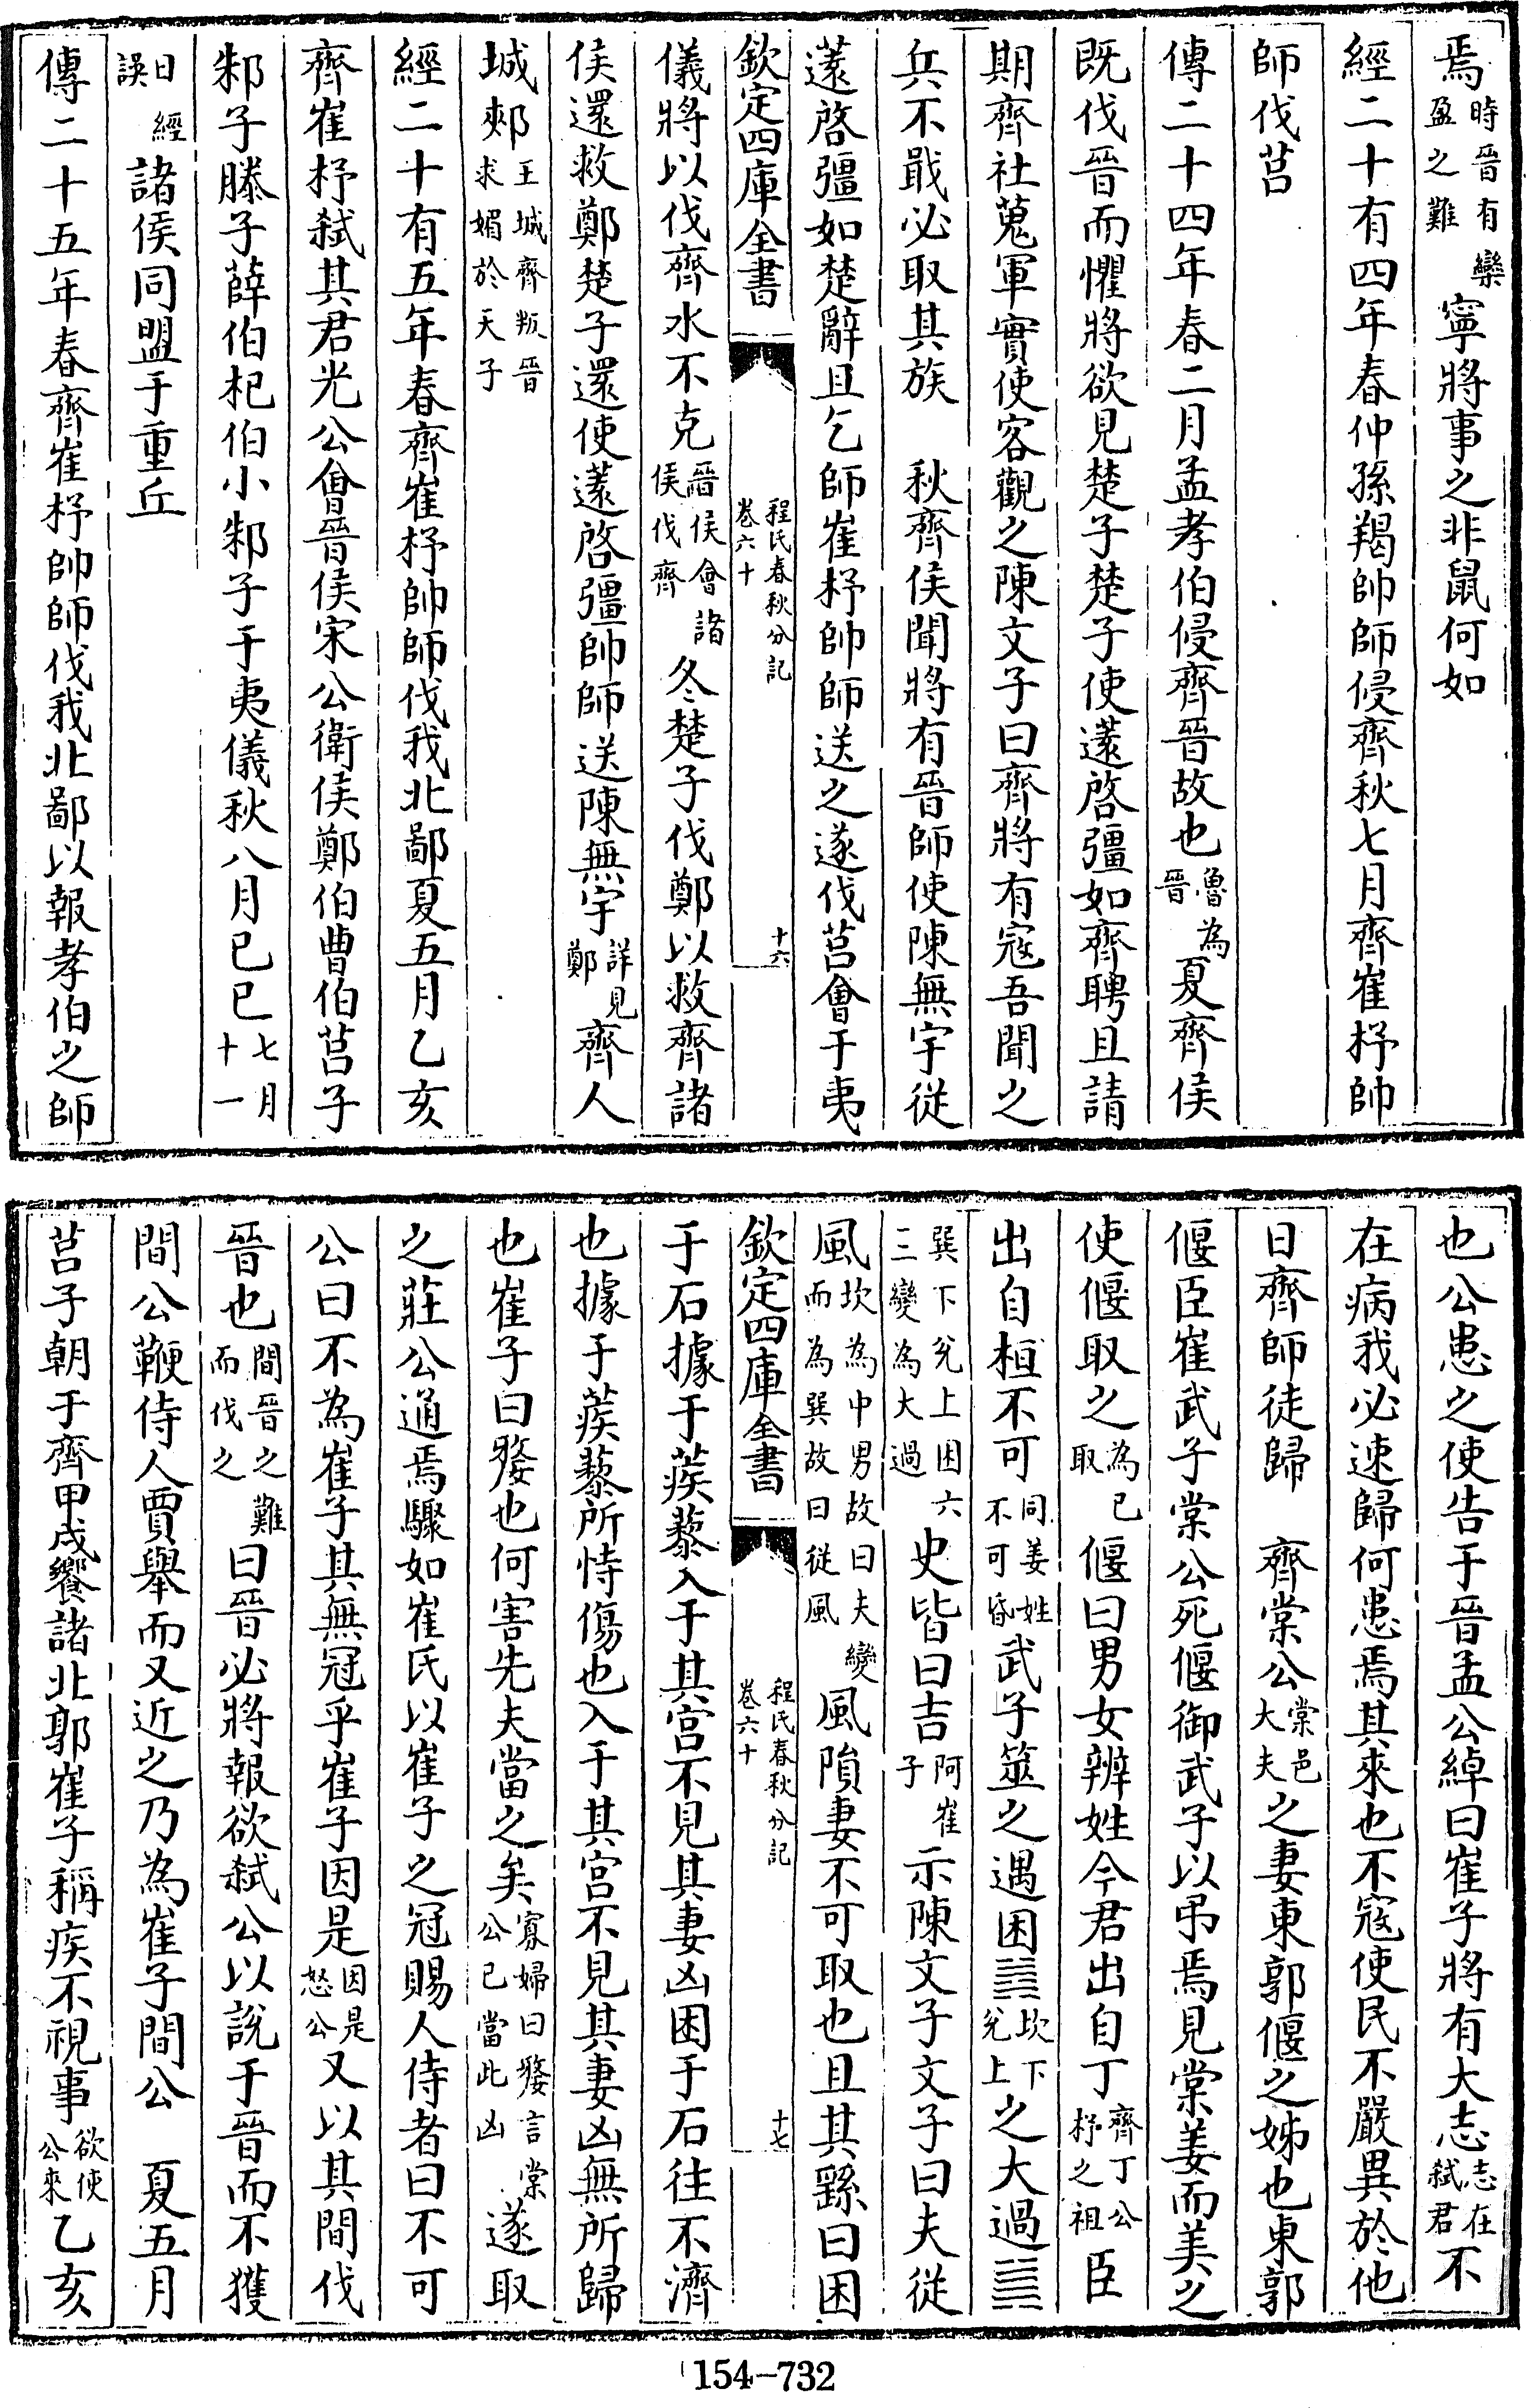 焉時晉有欒盈之難寧將事之非鼠何如
經二十有四年春仲孫羯帥師侵齊秋七月齊崔杼帥
師伐莒
傳二十四年春二月孟孝伯侵齊晉故也魯為晉夏齊侯
既伐晉而懼將欲見楚子楚子使薳啓彊如齊聘且請
期齊社蒐軍實使客觀之陳文子曰齊將有寇吾聞之
兵不戢必取其族　秋齊侯聞將有晉師使陳無宇從
薳啓彊如楚辭且乞師崔杼帥師送之遂伐莒會于夷
欽定四庫全書　程氏春秋分記卷六十　十六
儀將以伐齊水不克晉侯會諸侯伐齊冬楚子伐鄭以救齊諸
侯還救鄭楚子還使薳啓彊帥師送陳無宇詳見鄭齊人
城郟王城齊叛晉求媚於天子
經二十有五年春齊崔杼帥師伐我北鄙夏五月乙亥
齊崔杼弒其君光公會晉侯宋公衛侯鄭伯曹伯莒子
邾子滕子薛伯杞伯小邾子于夷儀秋八月己巳七月十一
日經誤諸侯同盟于重丘
傳二十五年春齊崔杼帥師伐我北鄙以報孝伯之師
也公患之使告于晉孟公綽曰崔子將有大志志在弒君不
在病我必速歸何患焉其來也不寇使民不嚴異於他
日齊師徒歸　齊棠公棠邑大夫之妻東郭偃之姊也東郭
偃臣崔武子棠公死偃御武子以弔焉見棠姜而美之
使偃取之為己取偃曰男女辨姓今君出自丁齊丁公杼之祖臣
出自桓不可同姜姓不可昏武子筮之遇困䷮坎下兌上之大過䷛
巽下兌上困六三變為大過史皆曰吉阿崔子示陳文子文子曰夫從
風坎為中男故曰夫變而為巽故曰從風風隕妻不可取也且其繇曰困
欽定四庫全書　程氏春秋分記卷六十　十七
于石據于蒺藜入于其宮不見其妻凶困于石往不濟
也據于蒺藜所恃傷也入于其宮不見其妻凶無所歸
也崔子曰嫠也何害先夫當之矣寡婦曰嫠言棠公已當此凶遂取
之莊公通焉驟如崔氏以崔子之冠賜人侍者曰不可
公曰不為崔子其無冠乎崔子因是因是怒公又以其間伐
晉也間晉之難而伐之曰晉必將報欲弒公以說于晉而不獲
間公鞭侍人賈舉而又近之乃為崔子間公　夏五月
莒子朝于齊甲戌饗諸北郭崔子稱疾不視事欲使公來乙亥
154-732